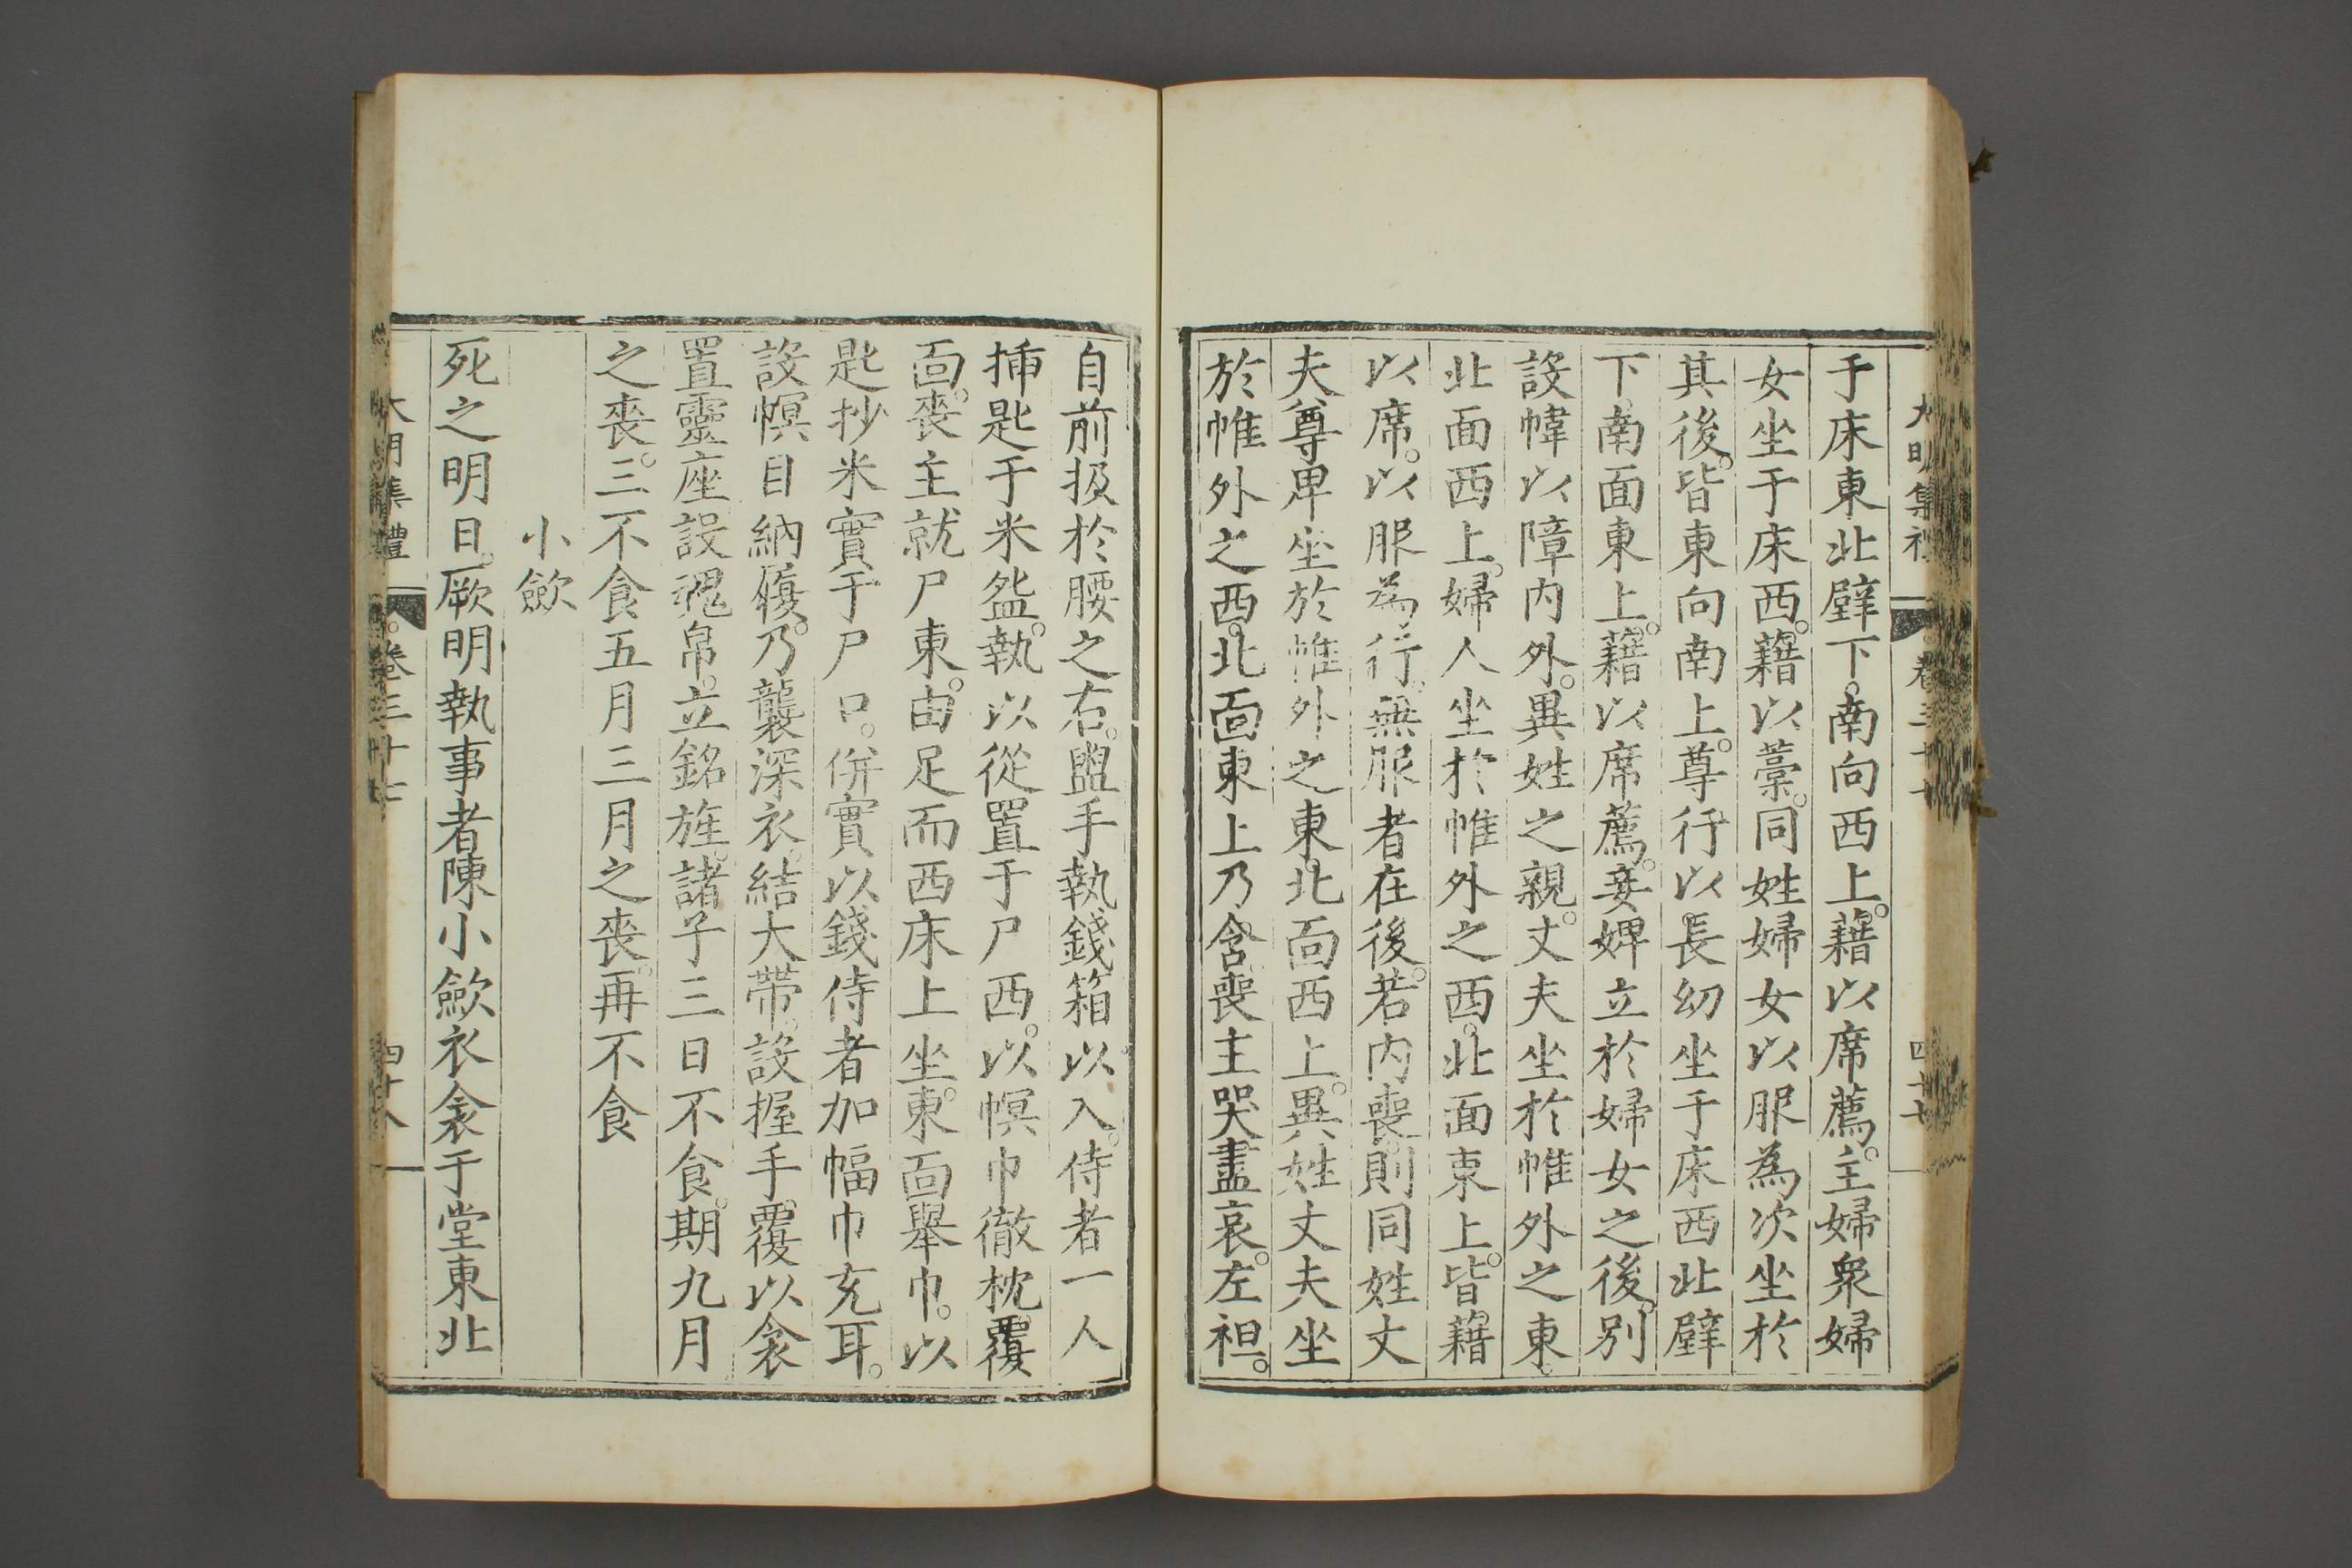 大明集禮 卷三十七 四十七
于床東北壁下。南向西上。藉以席薦。主婦衆婦
女坐于床西。藉以藁。同姓婦女以服為次坐於
其後。皆東向南上。尊行以長幼坐于床西北壁
下。南面東上。藉以席薦。妾婢立於婦女之後。別
設幃以障內外。異姓之親。丈夫坐於帷外之東。
北面西上。婦人坐於帷外之西。北面東上。皆藉
以席。以服為行。無服者在後。若內喪。則同姓丈
夫尊卑坐於帷外之東。北面西上。異姓丈夫坐
於帷外之西。北面東上乃含喪主哭盡哀。左袒。
自前扱於腰之右。盥手執錢箱以入。侍者一人
揷匙于米盌。執以從置于尸西。以幎巾徹枕。覆
面。喪主就尸東。由足而西床上坐。東面舉巾。以
匙抄米實于尸口。併實以錢侍者加幅巾充耳。
設幎目納履。乃襲深衣。結大帶。設握手。覆以衾
置靈座設魂帛。立銘旌。諸子三日不食。期九月
之喪。三不食五月三月之喪。再不食
小歛
死之明日。厥明執事者陳小歛衣衾于堂東北
大明集禮 卷三十七 四十八